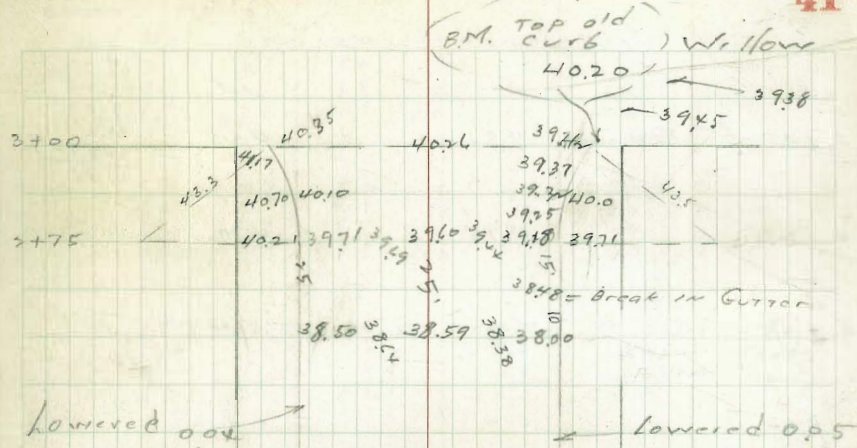 41
B.M. Top old Curb Willow
40.20
39.38
39.45
40.35
3+00 40.26
41.17 39.37
43.3 40.70 40.10 40.0 43.5
39.25
2+75 40.21 39.71 39.69 39.60 39.44 39.18 39.71
25 25' 15'
38.48 = Break in Gutter
10
38.50 38.64 38.59 38.38 38.00
Lowered 0.04 Lowered 0.05